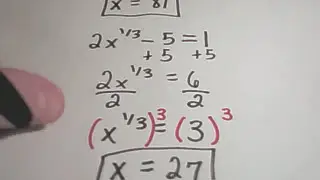 x = 81
2x^(1/3) - 5 = 1
+5 +5
2x^(1/3) = 6
2 2
(x^(1/3))^3 = (3)^3
x = 27